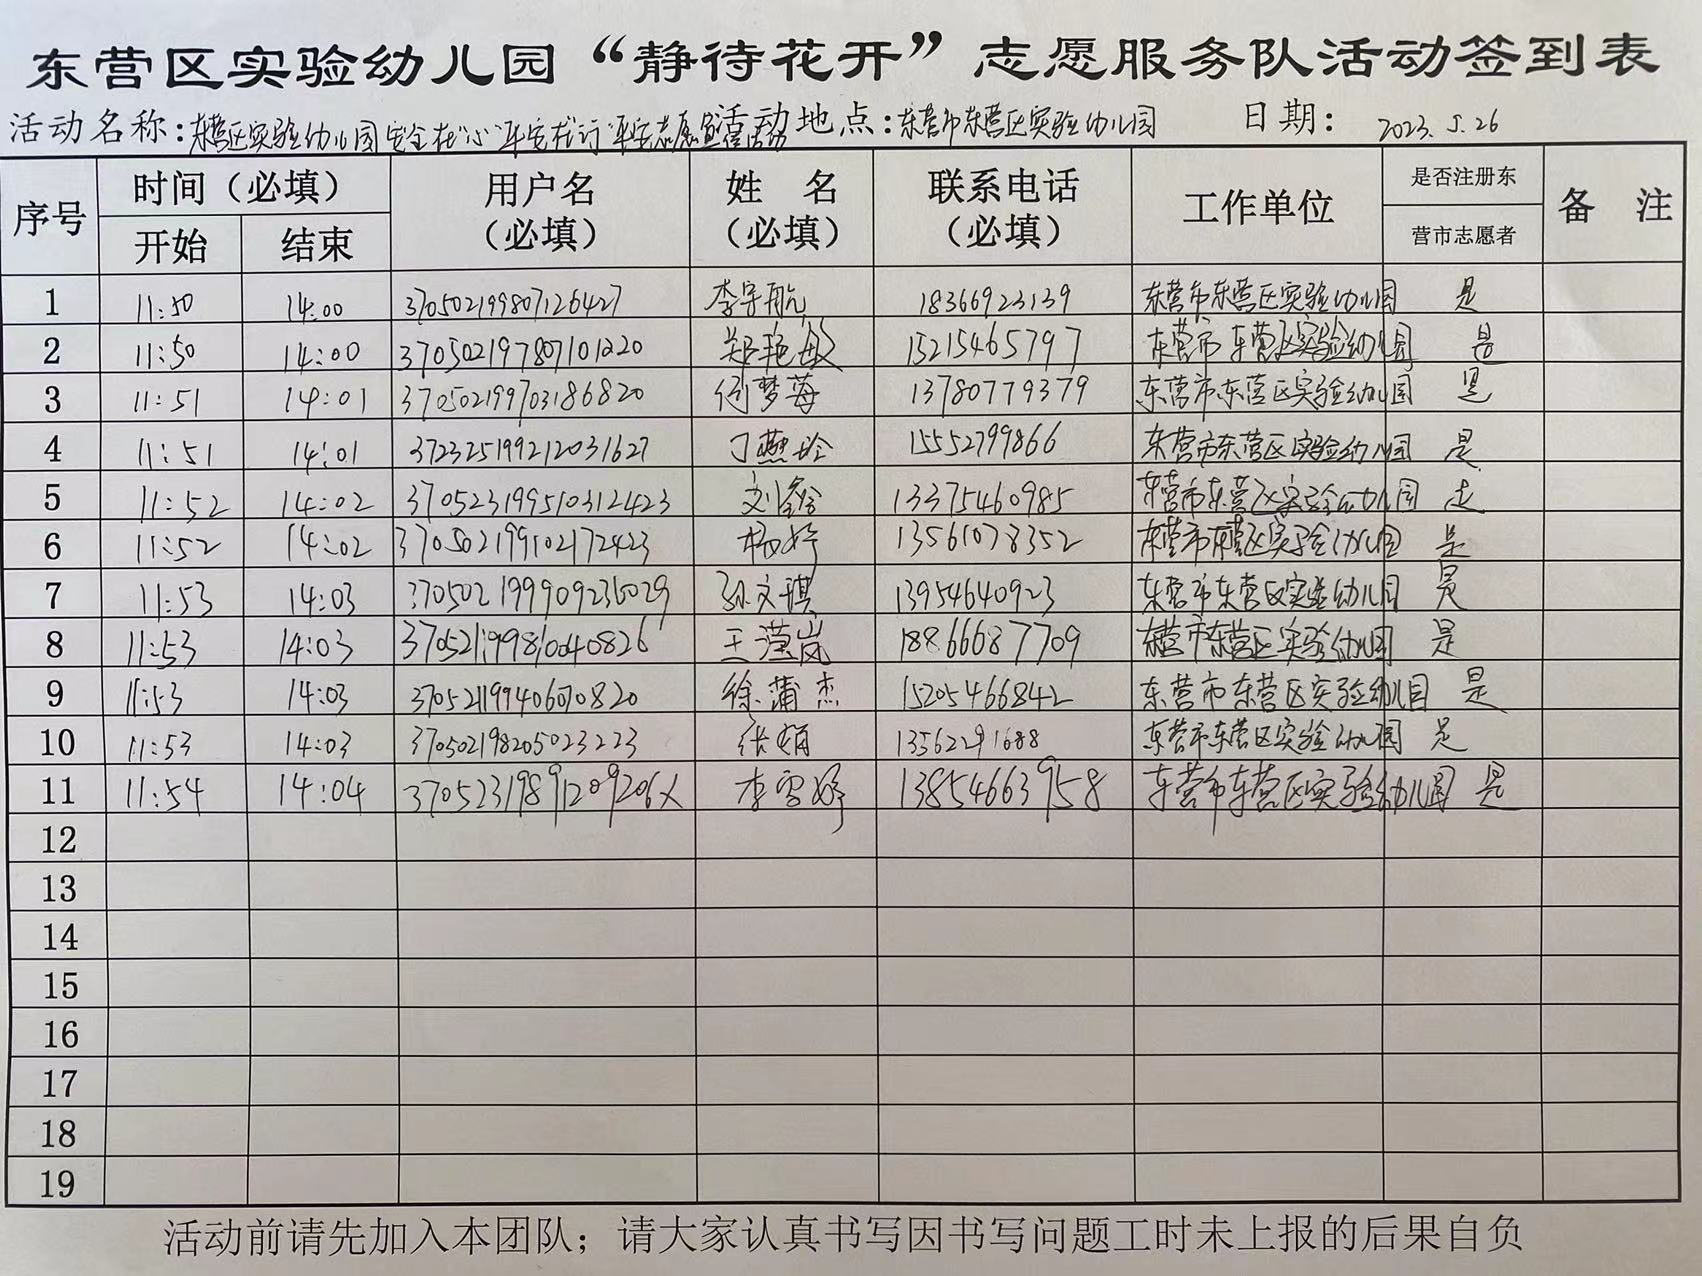 东营区实验幼儿园“静待花开”志愿服务队活动签到表
活动名称：东营区实验幼儿园安全在心 平安在行 平安志愿 活动 活动地点：东营市东营区实验幼儿园 日期： 2023.5.26
序号 时间（必填） 用户名（必填） 姓 名（必填） 联系电话（必填） 工作单位 是否注册东营市志愿者 备 注
开始 结束
1 11:50 14:00 370502199807126427 李宇航 18366923139 东营市东营区实验幼儿园 是
2 11:50 14:00 370502197807101220 郑艳敏 15215465797 东营市东营区实验幼儿园 是
3 11:51 14:01 370502199703186820 何梦莓 13780779379 东营市东营区实验幼儿园 是
4 11:51 14:01 372325199212031627 丁燕玲 15552799866 东营市东营区实验幼儿园 是
5 11:52 14:02 370523199510312423 刘 13375460985 东营市东营区实验幼儿园 是
6 11:52 14:02 370502199102172423 杨婷 13561078352 东营市东营区实验幼儿园 是
7 11:53 14:03 370502199909236029 孙文琪 13954640923 东营市东营区实验幼儿园 是
8 11:53 14:03 370521199810040826 王滢岚 18866687709 东营市东营区实验幼儿园 是
9 11:53 14:03 370521199406010820 徐蒲杰 15205466842 东营市东营区实验幼儿园 是
10 11:53 14:03 370502198205023223 张娟 13562291688 东营市东营区实验幼儿园 是
11 11:54 14:04 37052319891209206X 李雪婷 13854663958 东营市东营区实验幼儿园 是
12
13
14
15
16
17
18
19
活动前请先加入本团队；请大家认真书写因书写问题工时未上报的后果自负